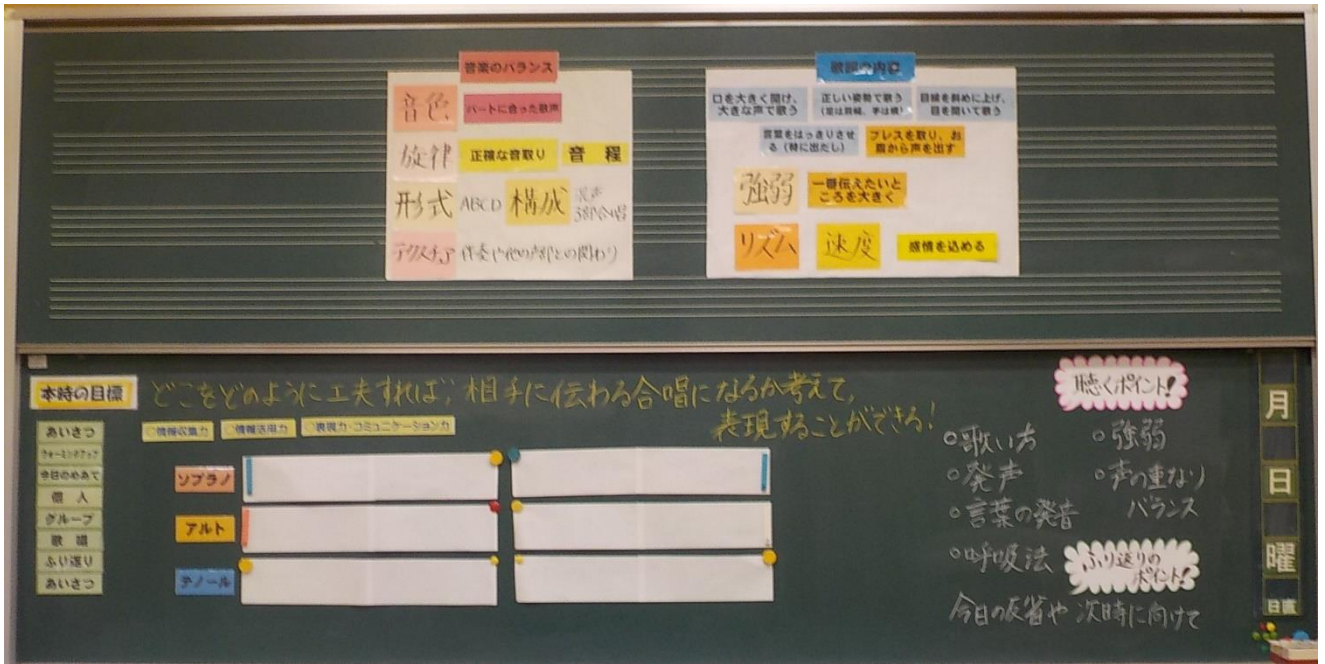 音楽のバランス
音色
パートに合った歌声
旋律
正確な音取り
音程
形式
ABCD
構成
混声
3部合唱
テクスチュア
伴奏や他の声部との関わり
歌詞の内容
口を大きく開け、
大きな声で歌う
正しい姿勢で歌う
(足は肩幅、手は横)
目線を斜めに上げ、
目を開いて歌う
言葉をはっきりさせ
る(特に出だし)
ブレスを取り、お
腹から声を出す
強弱
一番伝えたいと
ころを大きく
リズム
速度
感情を込める
本時の目標
どこをどのように工夫すれば、相手に伝わる合唱になるか考えて、
表現することができる!
○情報収集力
○情報活用力
○表現力・コミュニケーション力
あいさつ
ウォーミングアップ
今日のめあて
個人
グループ
歌唱
ふり返り
あいさつ
ソプラノ
アルト
テノール
聴くポイント!
○歌い方
○発声
○言葉の発音
○呼吸法
○強弱
○声の重なり
バランス
ふり返りの
ポイント!
今日の反省や次時に向けて
月
日
曜
日直